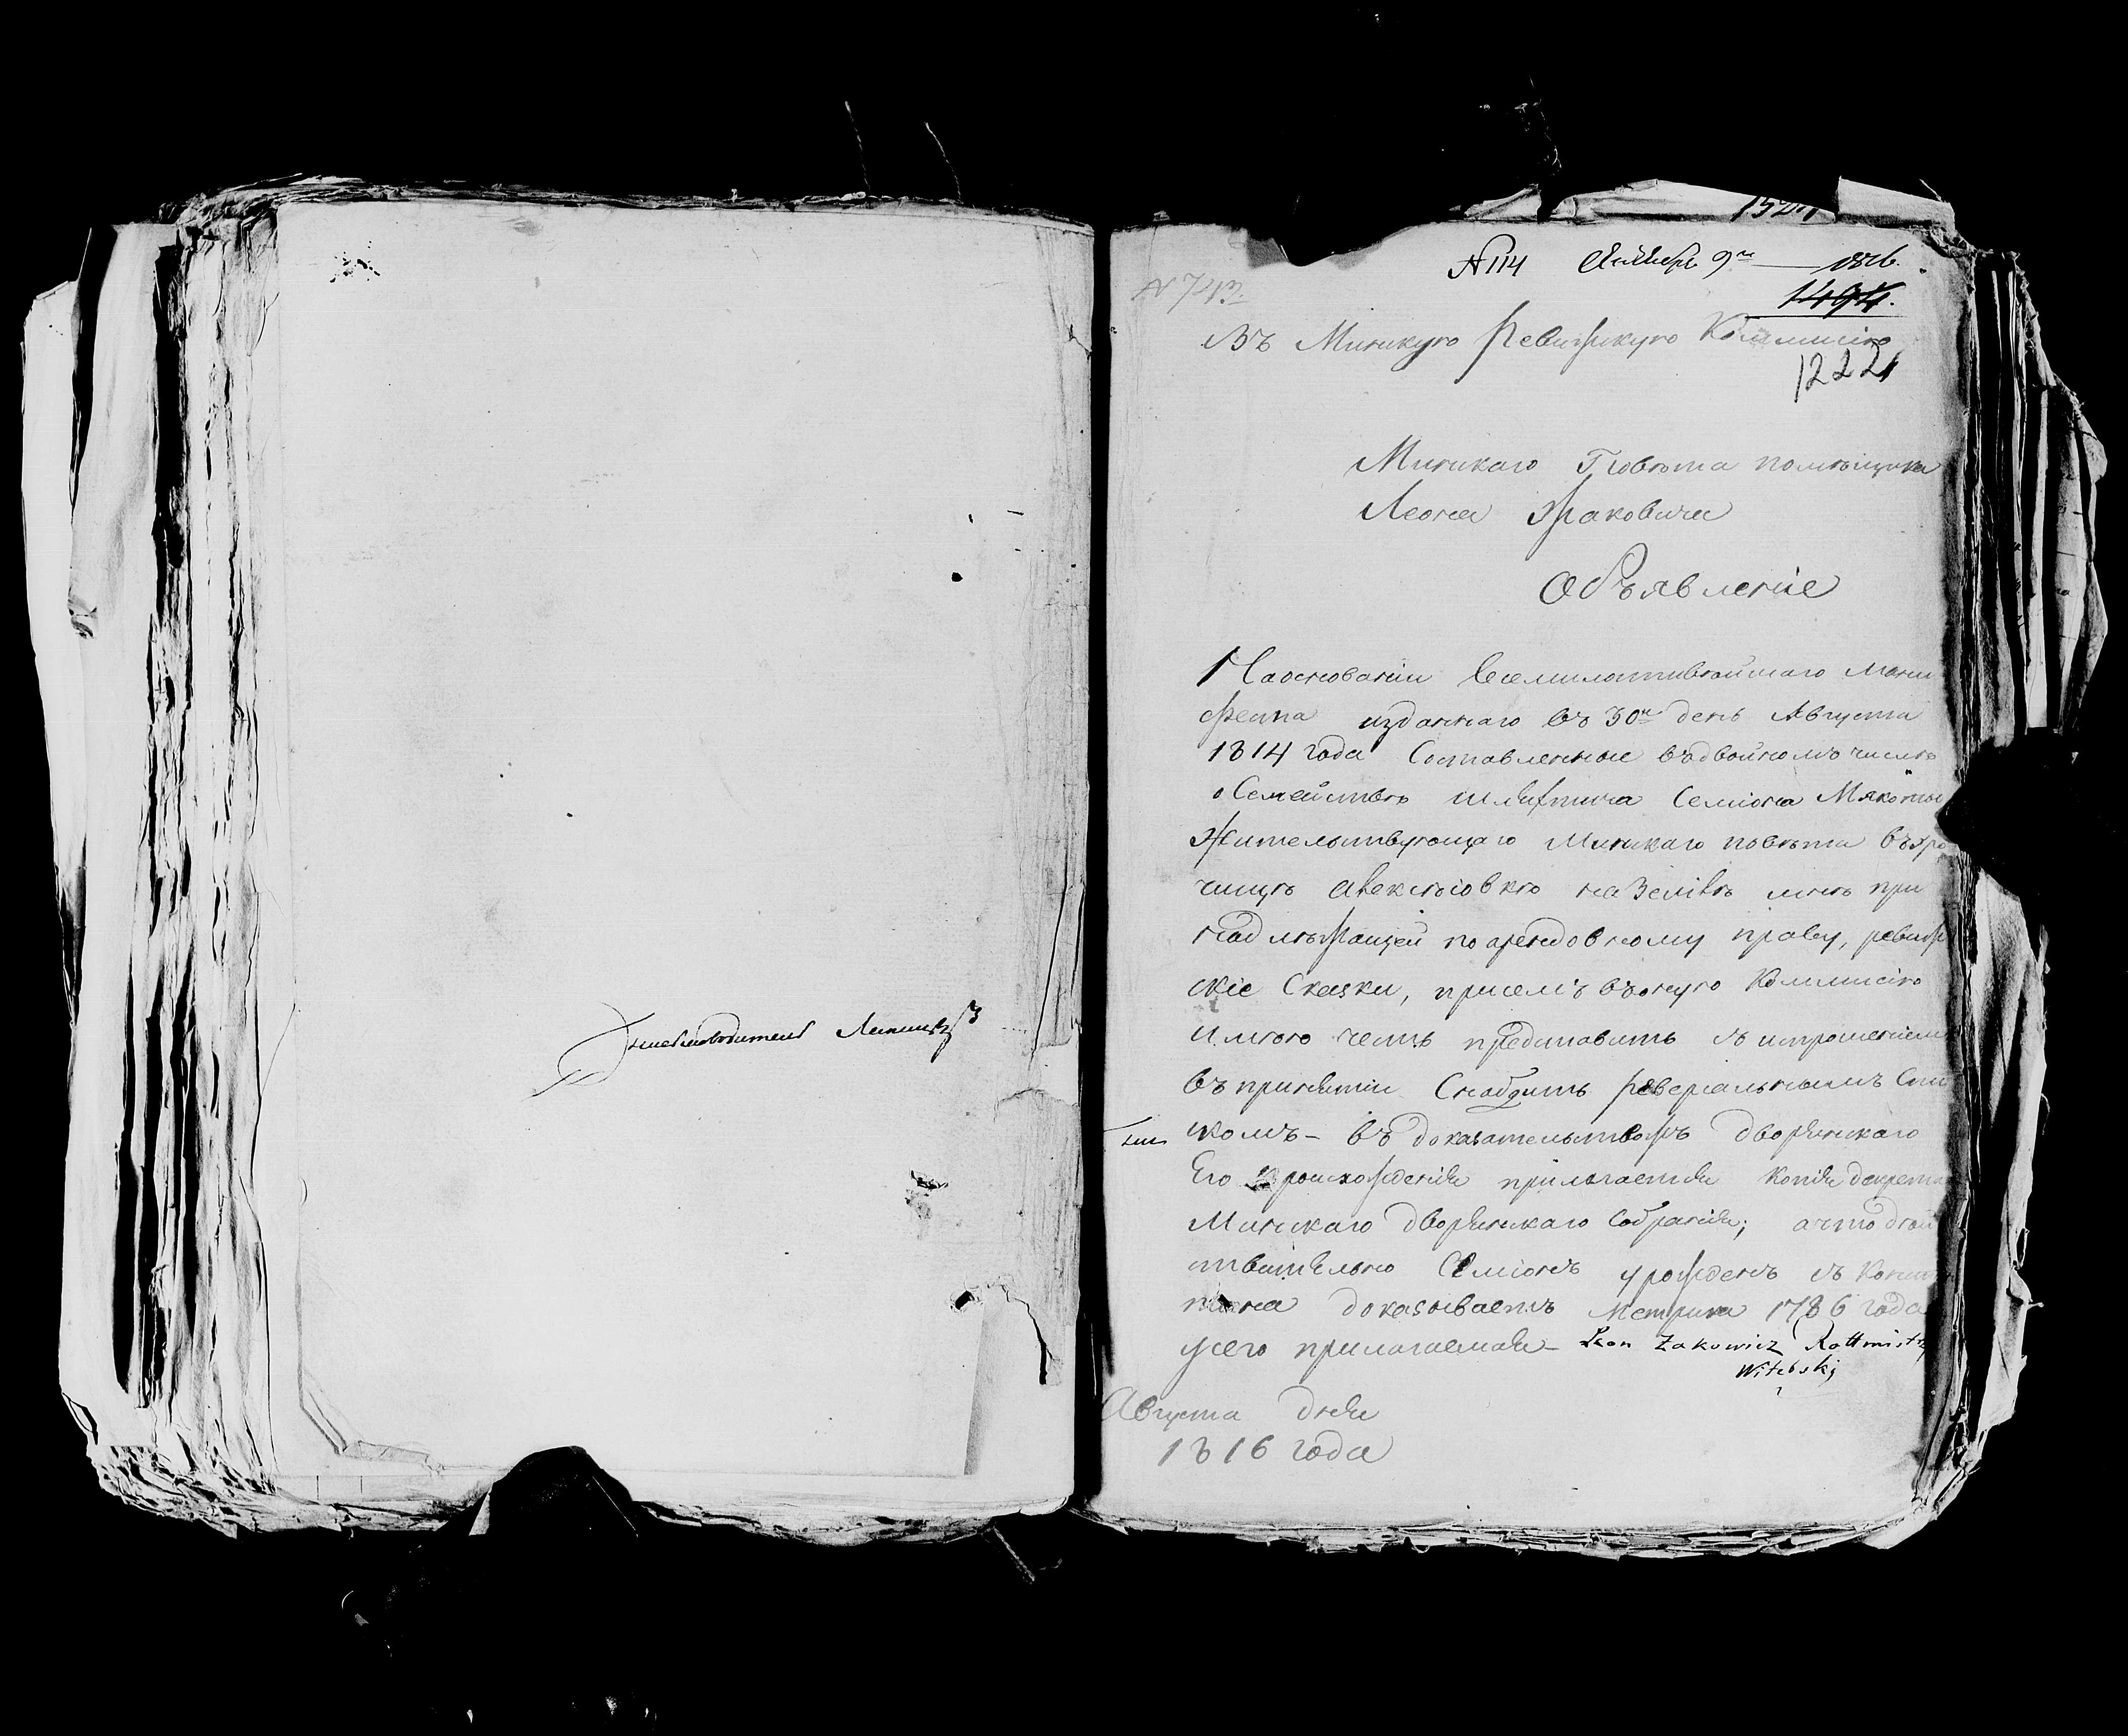 Письмоводитель
1521
№ 114 Октября 9го 1816.
№ 743.
1494.
Въ Минскую Ревизскую Коммисію
12221
Минскаго Повѣта помѣщика
Леона Жаковича
Объявленіе
На основаніи Всемилостивѣйшаго Мани
феста изданнаго въ 30й день Августа
1814 года Составленные въ двойномъ числѣ
о Семействѣ шляхтича Семіона Мякоты
жительствующаго Минскаго повѣта въ уро
чищѣ Алексѣіовкѣ на Землѣ мнѣ при
надлѣжащей по арендовному праву, ревиж
скіе Сказки, при семъ въ оную Коммисію
имѣю честь представить съ испрошеніемъ
въ принятіи Снабдить реверсальнымъ Спи
скомъ – въ доказательствахъ дворянскаго
Его происхожденія прилагается копія декрета
Минскаго дворянскаго Собранія; а что дѣй
ствительно Семіонъ урожденъ съ
доказываетъ Метрика 1786 года
у сего прилагаемая – Leon Zakowicz Rottmistrz
Witebski
Августа дня
1816 года